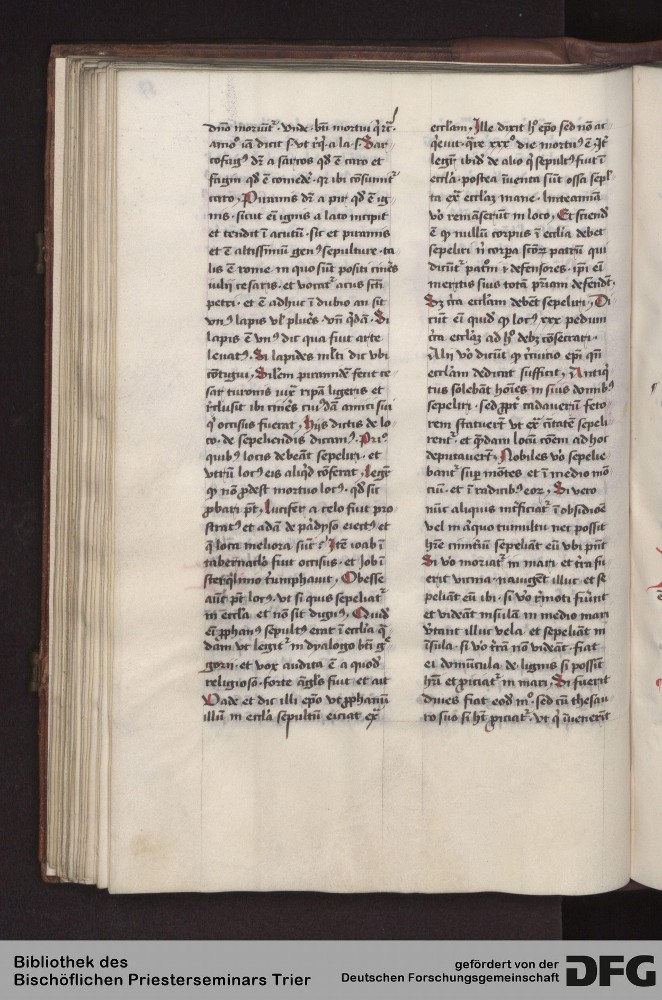 dno moriūtˀ · vnde · bti mortui
dicit s· vt · a la · s· Sar
cofagꝰ dr̄ a sarcos qd ē caro et
fagin qd ē comedē · qr ibi cōsumitˀ
caro, Piramis dr̄ a pir qd ē ig
nis · sicut eīn ignis a lato incipit
et tendit ī acutū · sic et piramis
et ē altissimū genꝰ sepulture · ta
lis ē rome in quo sūt positi cinēs
iulij cesaris · et vocatˀ acus scti
petri · et ē adhuc ī dubio an sit
vnꝰ lapis vl plurēs · vn̄ qdā · Si
lapis ē vnꝰ dic qua fuit arte
leuatꝰ, Si lapides mlti dic vbi
cōtigui, Silem piramidē fecit ce
sar turonis iuxˀ ripā ligeris et
īclusit ibi cinēs cuiꝰdā amici sui
qˀ occisus fuerat, Hijs dictis de lo
co · de sepeliendis dicamꝰ, Prio
quibꝰ locis debeāt sepeliri · et
vtrū locꝰ eis aliqd cōferat, Legrˀ
qˀ nō pdest mortuo locꝰ · qd sic
pbari pt̄, Lucifer a celo fuit pro
stratꝰ et adā de padyso eiectꝰ et
q̄ loca meliora sūt? Itē ioab ī
tabernaclo fuit occisus · et Job ī
sterqlinio triumphauit, Obesse
aut pt̄ locꝰ · vt si quis sepeliatˀ
in eccla · et nō sit dignꝰ, Quidā
eī pphanꝰ sepultꝰ erat ī ecclia q̄
dam vt legitˀ in dyalogo bti gˀ
gorij · et vox audita ē a quodˀ
religioso · forte āgls fuit et ait
Vade et dic illi epo vt pphanū
illū in eccla sepultū eiciat exˀ
ecclam · Ille dixit hˀ epo sed nō ac
qˀeuit · qre xxxˀ die mortuꝰ ē, qtˀ
legitˀ ibid de alio qˀ sepultꝰ fuit ī
eccla · postea īuenta sūt ossa sepl
ta exˀ ecclaꝫ mane · linteamīa
vo remāserūt in loco, Et sciend
ē qˀ nullū corpus ī ecclia debet
sepeliri nˀ corpa scorꝫ patrū qui
dicūtˀ patoi et defensores · ipi eī
meritis suis totā priam defendt,
Sꝫ cra ecclam debēt sepeliri, Di
cūt eī quid qˀ locꝰ xxx pedum
cra ecclaꝫ ad hˀ debꝫ cōsecrari ·
Alij vo dicūt qˀ cuitio epi qn̄
ecclam dedicat sufficit, Antiqˀ
tus solebāt hoīes in suis domibꝰ
sepeliri · sed ppt cadauerū feto
rem statuert vt exˀ ciuitatē sepeli
rentˀ · et qdam locū cōem ad hoc
deputauert, Nobiles vo sepelie
bantˀ sup mōtes et ī medio mō
ciū · et ī radicibꝰ eorˀ, Si vero
nūc aliquis intficiatˀ ī obsidiōe
vel in aliquo tumultu nec possit
hr̄e cimitiū sepeliāt eū vbi pnt
Si vo moriatˀ in mari · et tra fu
erit vicina · nauigent illuc · et se
peliāt eū ibi · si vo rmoti fuint
et videāt insulā in medio mari
vtant illuc vela · et sepeliāt in
īsula · si vo trā nō videāt · fiat
ei domūcula de · lignis si possūt
hrī et piciatˀ in mari, Si fuerit
diues fiat eod mˀ · sed cū thesau
ro suo si hnt piciatˀ · vt qˀ īuenerīt
Bibliothek des
Bischöflichen Priesterseminars Trier
gefördert von der
Deutschen Forschungsgemeinschaft
DFG